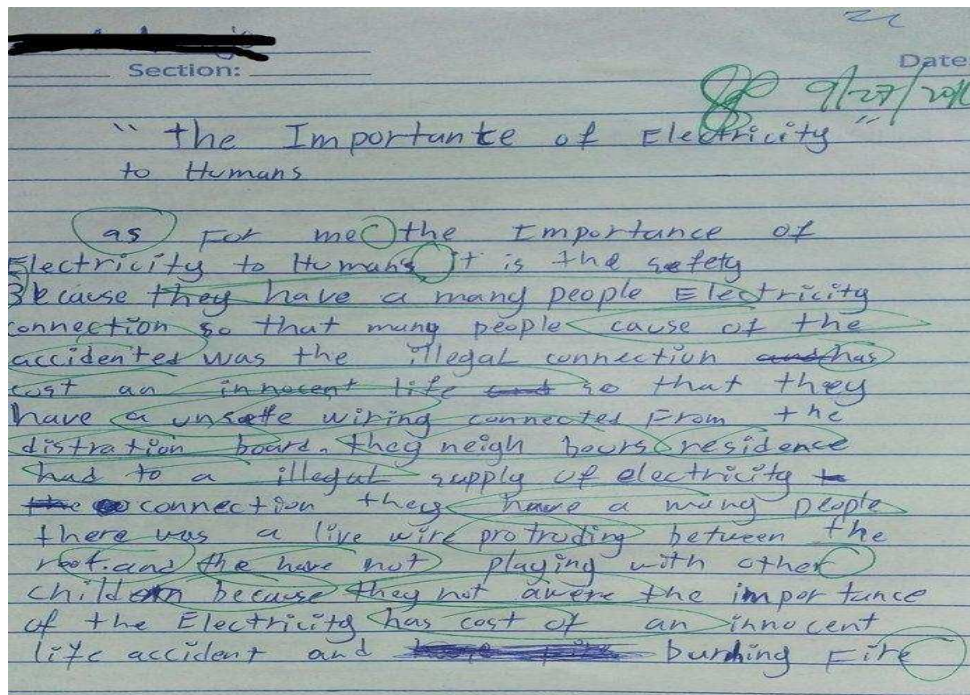 Section:
Date
9/27/201
"the Importante of Electricity"
to Humans
as For me the Importance of
Electricity to Humans It is the safety
Because they have a many people Electricity
connection so that many people cause of the
accidented was the illegal connection and has
cost an innocent life and so that they
have a unsafe wiring connected From the
distration board. they neigh bours residence
had to a illegal supply of electricity
the connection they have a many people
there was a live wire protruding between the
roof. and the have not playing with other
children because they not awere the impor tance
of the Electricity has cost of an innocent
life accident and burning Fire